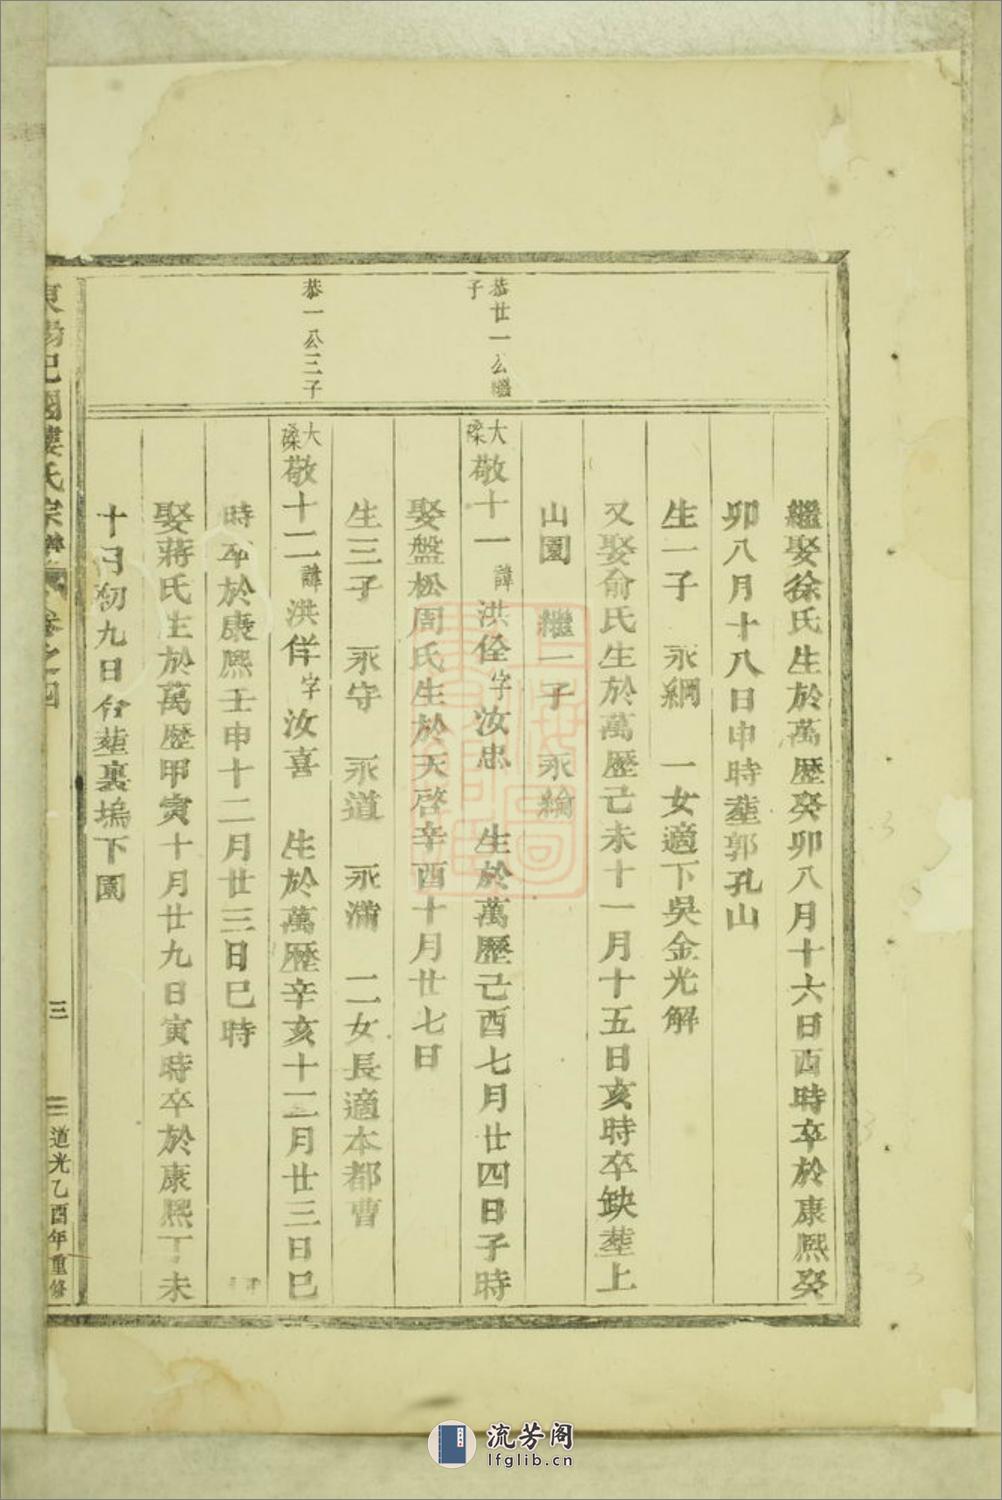 繼娶徐氏生於萬歷癸卯八月十六日酉時卒於康熙癸
卯八月十八日申時塟郭孔山
生一子 永綱 一女適下吳金光解
又娶俞氏生於萬歷己未十一月十五日亥時卒缺塟上
山園 繼一子 永綸
恭廿一公繼子
大磉敬十一諱洪佺字汝忠 生於萬歷己酉七月廿四日子時
娶盤松周氏生於天啓辛酉十月廿七日
生三子 永守 永道 永滿 二女長適本都曹
恭一公三子
大磉敬十二諱洪佯字汝喜 生於萬歷辛亥十二月廿三日巳
時卒於康熙壬申十二月廿三日巳時
娶蔣氏生於萬歷甲寅十月廿九日寅時卒於康熙丁未
十月初九日合塟裏塢下園
東陽杞國婁氏宗譜 卷之四 三 道光乙酉年重修
流芳阁
lfglib.cn